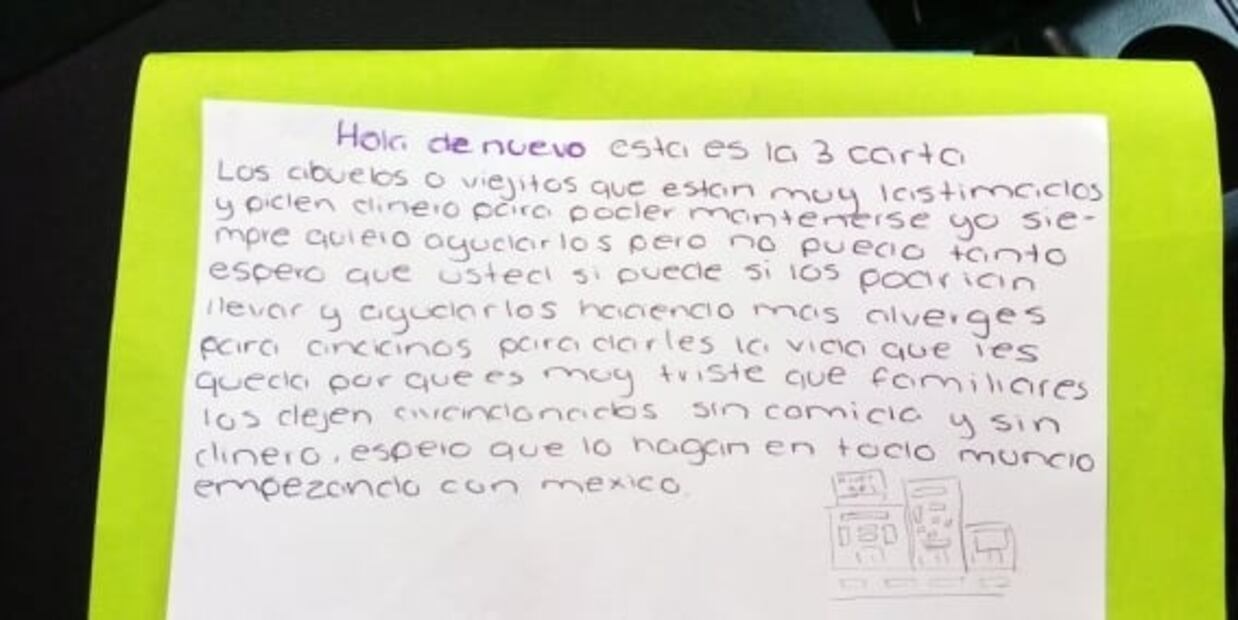 Hola de nuevo esta es la 3 carta
Los abuelos o viejitos que estan muy lastimados
y piden dinero para poder mantenerse yo sie-
mpre quiero ayudarlos pero no puedo tanto
espero que usted si puede si los podrian
llevar y ayudarlos haciendo mas alverges
para ancianos para darles la vida que les
queda por que es muy triste que familiares
los dejen abandonados sin comida y sin
dinero. espero que lo hagan en todo mundo
empezando con mexico.